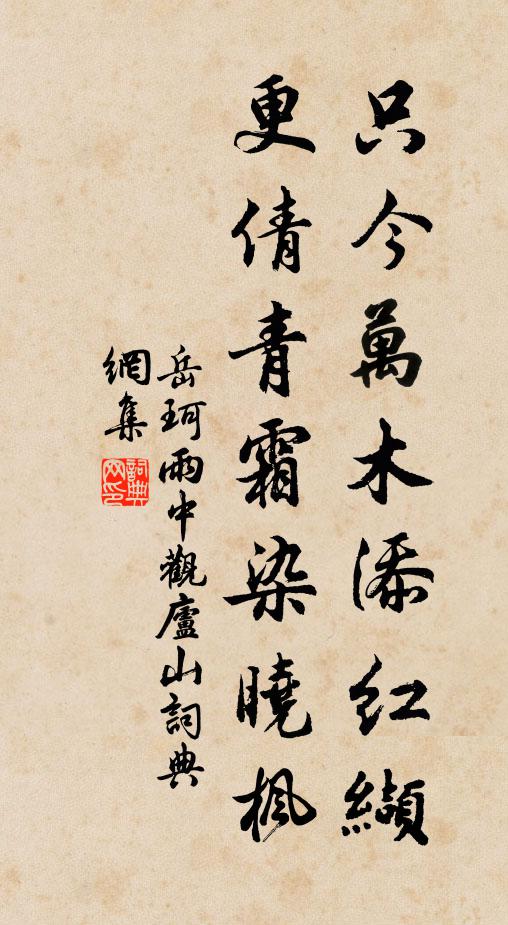 只今萬木添紅纈
更倩青霜染曉楓
岳珂雨中觀廬山詞典
網集
詞典網印